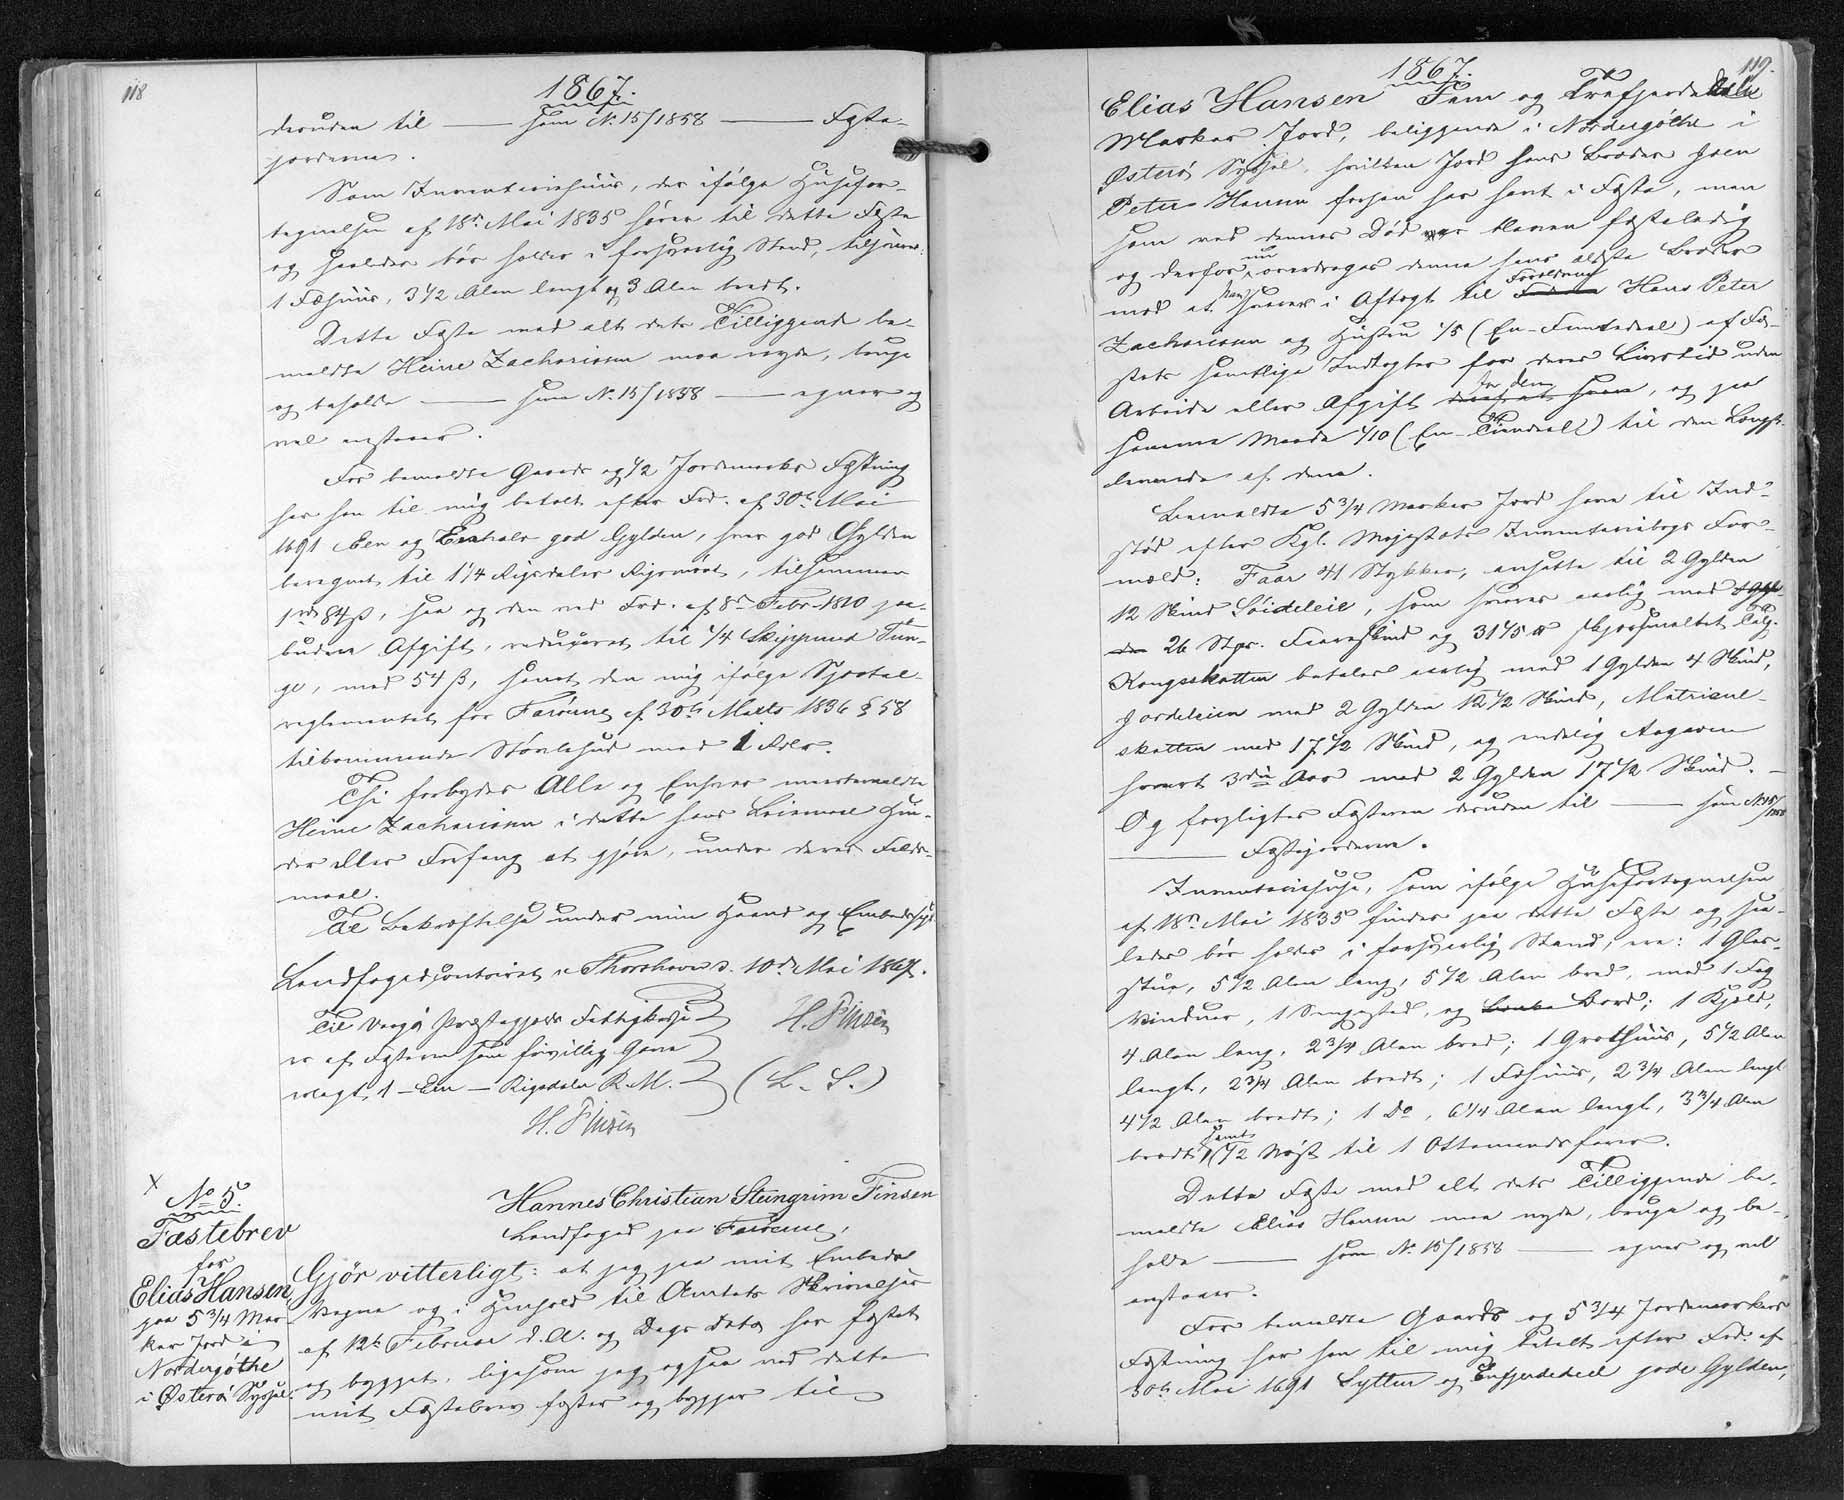 118
1867.
desuden til — som No. 15/1858 — Fæste-
jorderne.
Som Inventariehuus, der ifølge Huusefor-
tegnelsen af 18de Mai 1835 hører til dette Fæste
og saaledes bør holdes i forsvarlig Stand, tilhører:
1 Fæhuus, 3 1/2 Alen langt og 3 Alen bredt.
Dette Fæste med alt dets Tilliggende be-
meldte Heine Zachariasen maa nyde, bruge
og beholde — som No. 15/1858 — egner og
vel anstaaer.
For bemeldte Gaards og 1/2 Jordemarks Fæstning
har han til mig betalt efter Frd. af 30te Mai
1691 Een og Enhalv god Gylden, hver god Gylden
beregnet til 1 1/4 Rigsdaler Rigsmønt, tilsammen
1 rd 84 ß, saa og den ved Frd. af 8de Febr. 1810 paa-
budne Afgift, reduceret til 1/4 Skippund Tun-
ge, med 54 ß, samt den mig ifølge Sportel-
reglementet for Færøerne af 30te Marts 1836 § 58
tilkommende Støvlehud med 1 Rdlr.
Thi forbydes Alle og Enhver meerbemeldte
Heine Zachariasen i dette hans Leiemaal Hin-
der eller Forfang at gjøre, under deres Falds-
maal.
Til Bekræftelse under min Haand og Embedssegl.
Landfogedcontoiret i Thorshavn d. 10de Mai 1867.
Til Vaagø Præstegjelds Fattigkasse
er af Fæsteren som frivillig Gave
erlagt 1 — Een — Rigsdaler R. M.
H. Finsen
(L. S.)
H. Finsen
X
No 5.
Fæstebrev
for
Elias Hansen
paa 5 3/4 Mar-
ker Jord i
Nordergøthe
i Østerø Syssel.
Hannes Christian Steingrim Finsen
Landfoged paa Færøerne,
Gjör vitterligt: at jeg paa mit Embeds
Vegne og i Henhold til Amtets Skrivelser
af 12te Februar d. A. og Dags Dato har fæstet
og bygget, ligesom jeg ogsaa ved dette
mit Fæstebrev fæster og bygger til
119.
1867.
Elias Hansen Fem og Trefjerdedele
Marker Jord, beliggende i Nordergøthe i
Østerø Syssel, hvilken Jord hans Broder Joen
Peter Hansen forhen har havt i Fæste, men
som ved dennes Død er bleven fæsteledig
og derfor nu overdrages denne hans ældste Broder
mod at han svarer i Aftægt til Forældrene Hans Peter
Zachariasen og Hustru 1/5 (En-Femtedeel) af Fæ-
stets samtlige Indtægter for deres Livstid uden
Arbeide eller Afgift for dem, og paa
samme Maade 1/10 (En Tiendeel) til den Længst-
levende af dem.
Bemeldte 5 3/4 Marker Jord have til Ind-
stød efter Kgl. Majestæts Inventariebogs For-
mæld: Faar 41 Stykker, ansatte til 2 Gylden
12 Skind Søideleie, som svares aarlig med
26 Stpr. Faareskind og 31 1/5 # skjørsmaltet Talg.
Kongsskatten betales aarlig med 1 Gylden 4 Skind,
Jordeleien med 2 Gylden 12 1/2 Skind, Matricul-
skatten med 17 1/2 Skind, og endelig Aagaven
hvert 3die Aar med 2 Gylden 17 1/2 Skind. —
Og forpligtes Fæsteren desuden til — som No. 15/1858
— Fæstejorderne.
Inventariehuse, som ifølge Huusefortegnelsen
af 18de Mai 1835 findes paa dette Fæste og saa-
ledes bør holdes i forsvarlig Stand, ere: 1 Glas-
stue, 5 1/2 Alen lang, 5 1/2 Alen bred, med 1 Fag
Vinduer, 1 Sengested, og Bord; 1 Kjeld,
4 Alen lang, 2 3/4 Alen bred; 1 Grothuus, 5 1/2 Alen
langt, 2 3/4 Alen bredt; 1 Fæhuus, 2 3/4 Alen langt
4 1/2 Alen bredt; 1 Do, 6 1/4 Alen langt, 3 3/4 Alen
bredt samt 1/2 Nøst til 1 Ottemandsfarer.
Dette Fæste med alt dets Tilliggende be-
meldte Elias Hansen maa nyde, bruge og be-
holde — som No. 15/1858 — egner og vel
anstaaer.
For bemeldte Gaards og 5 3/4 Jordemarkers
Fæstning har han til mig betalt efter Frd. af
30te Mai 1691 Sytten og Enfjerdedeel gode Gylden,